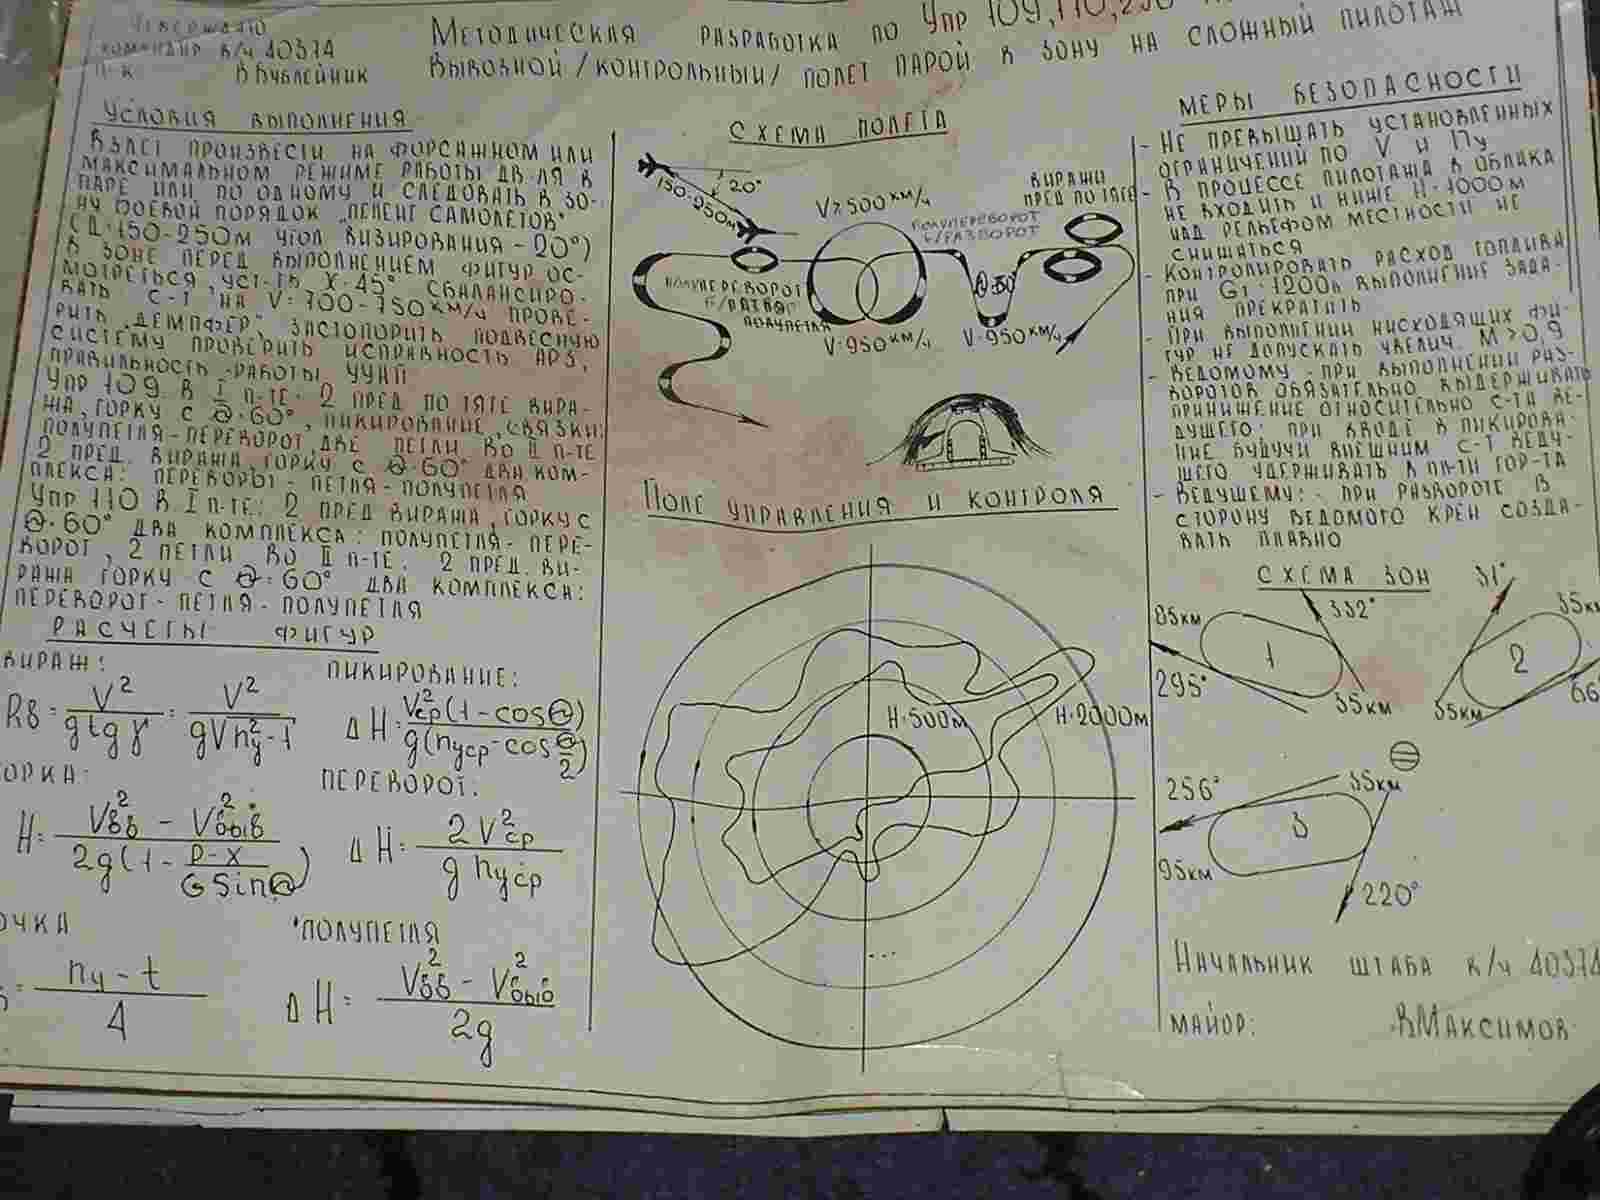 Утверждаю
командир в/ч 40374
п-к В Бублейник
Методическая разработка по Упр 109, 110,
Вывозной /контрольный/ полет парой в зону на сложный пилотаж
Условия выполнения
Взлет произвести на форсажном или
максимальном режиме работы дв-ля в
паре или по одному и следовать в зо-
ну боевой порядок „пеленг самолетов"
(Д=150-250м угол визирования - 20°)
В зоне перед выполнением фигур ос-
мотреться, уст-ть 45° сбалансиро-
вать с-т на V=700-750км/ч прове-
рить „демпфер", застопорить подвесную
систему проверить исправность АРЗ,
правильность работы
Упр 109 в I п-те: 2 пред по тяге вира-
жа, горку с Θ=60°, пикирование, связки:
полупетля-переворот, две петли. Во II п-те
2 пред. виража, горку с Θ=60° два ком-
плекса: переворот - петля - полупетля
Упр 110 в I п-те: 2 пред виража, горку с
Θ=60° два комплекса: полупетля-пере-
ворот, 2 петли. Во II п-те: 2 пред. ви-
ража горку с Θ=60° два комплекса:
переворот - петля - полупетля
Расчеты фигур
Вираж:
Rв = V² / g tg γ = V² / g√nу²-1
Пикирование:
ΔH = V²ср(1-cosΘ) / g(nуср-cos Θ/2)
орка:
H = V²вв - V²выв / 2g(1- P-X / G sinΘ)
Переворот:
ΔH = 2V²ср / g nуср
очка
= nу - t / 4
Полупетля
ΔH = V²вв - V²выв / 2g
Схема полета
20°
150-250м
V≥500км/ч
полупереворот
б/разворот
Виражи
пред по тяге
полупереворот
полупетля
V=950км/ч
V=950км/ч
Поле управления и контроля
H=500м
H=2000м
...
Меры безопасности
- Не превышать установленных
ограничений по V и Пу
- В процессе пилотажа в облака
не входить и ниже H=1000м
над рельефом местности не
снижаться
- Контролировать расход топлива
при Gт=1200л выполнение зада-
ния прекратить
- При выполнении нисходящих фи-
гур не допускать увелич. M>0,9
- Ведомому - при выполнении раз-
воротов обязательно выдерживать
принижение относительно с-та ве-
дущего; при вводе в пикирова-
ние будучи внешним с-т веду-
щего удерживать в пл-ти гор-та
- Ведущему: - при развороте в
сторону ведомого крен созда-
вать плавно
Схема зон
85км
332°
1
295°
55км
31°
35км
2
55км
66°
256°
55км
3
95км
220°
Начальник штаба в/ч 40374
майор: В Максимов